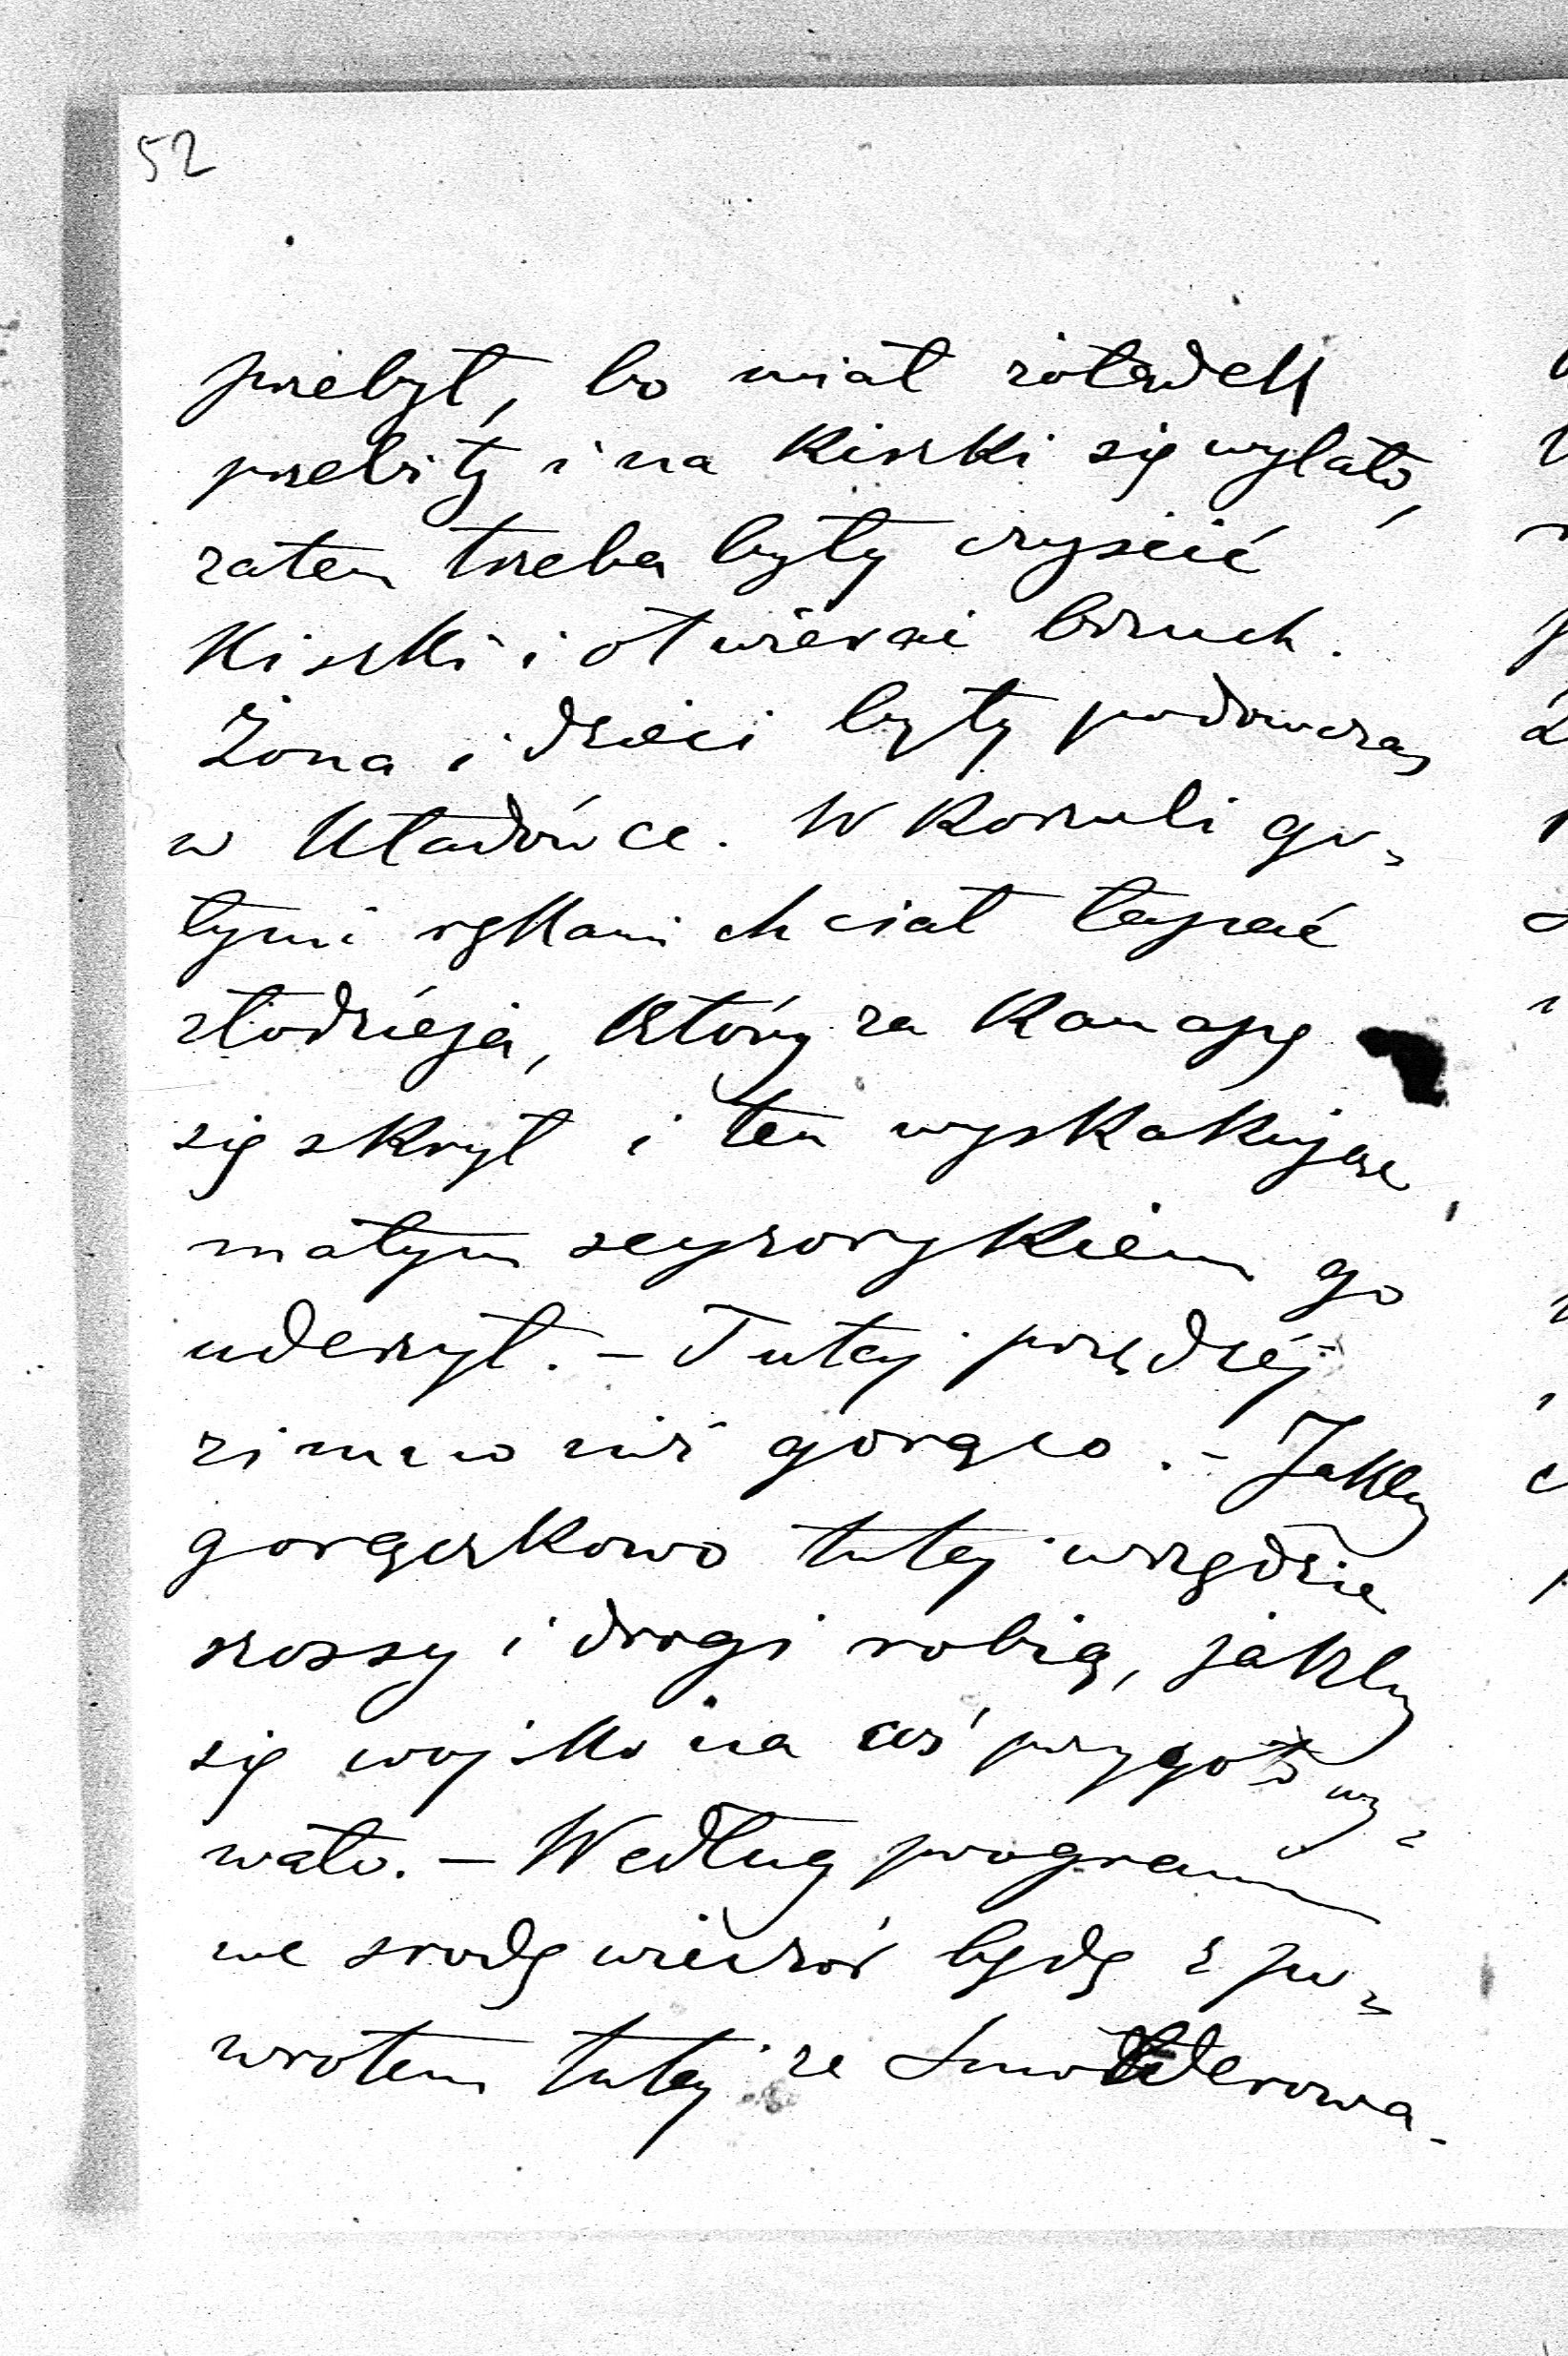 52
przebył, bo miał żołądek
przebity i na kiszki się wylało,
zatem trzeba były czyścić
kiszki i otwierać brzuch.
Żona i dzieci były podówczas
w Uładówce. W koszuli go-
łymi rękami chciał łapać
złodzieja, który za kanapę
się skrył i ten wyskakując,
małym scyzorykiem go
uderzył. – Tutaj prędzéj
zimno niż gorąco. – Jakby
gorączkowo tutaj wszędzie
szossy i drogi robią, jakby
się wojsko na coś przygotowy-
wało. – Według programu
we środę wieczór będę z po-
wrotem tutaj ze